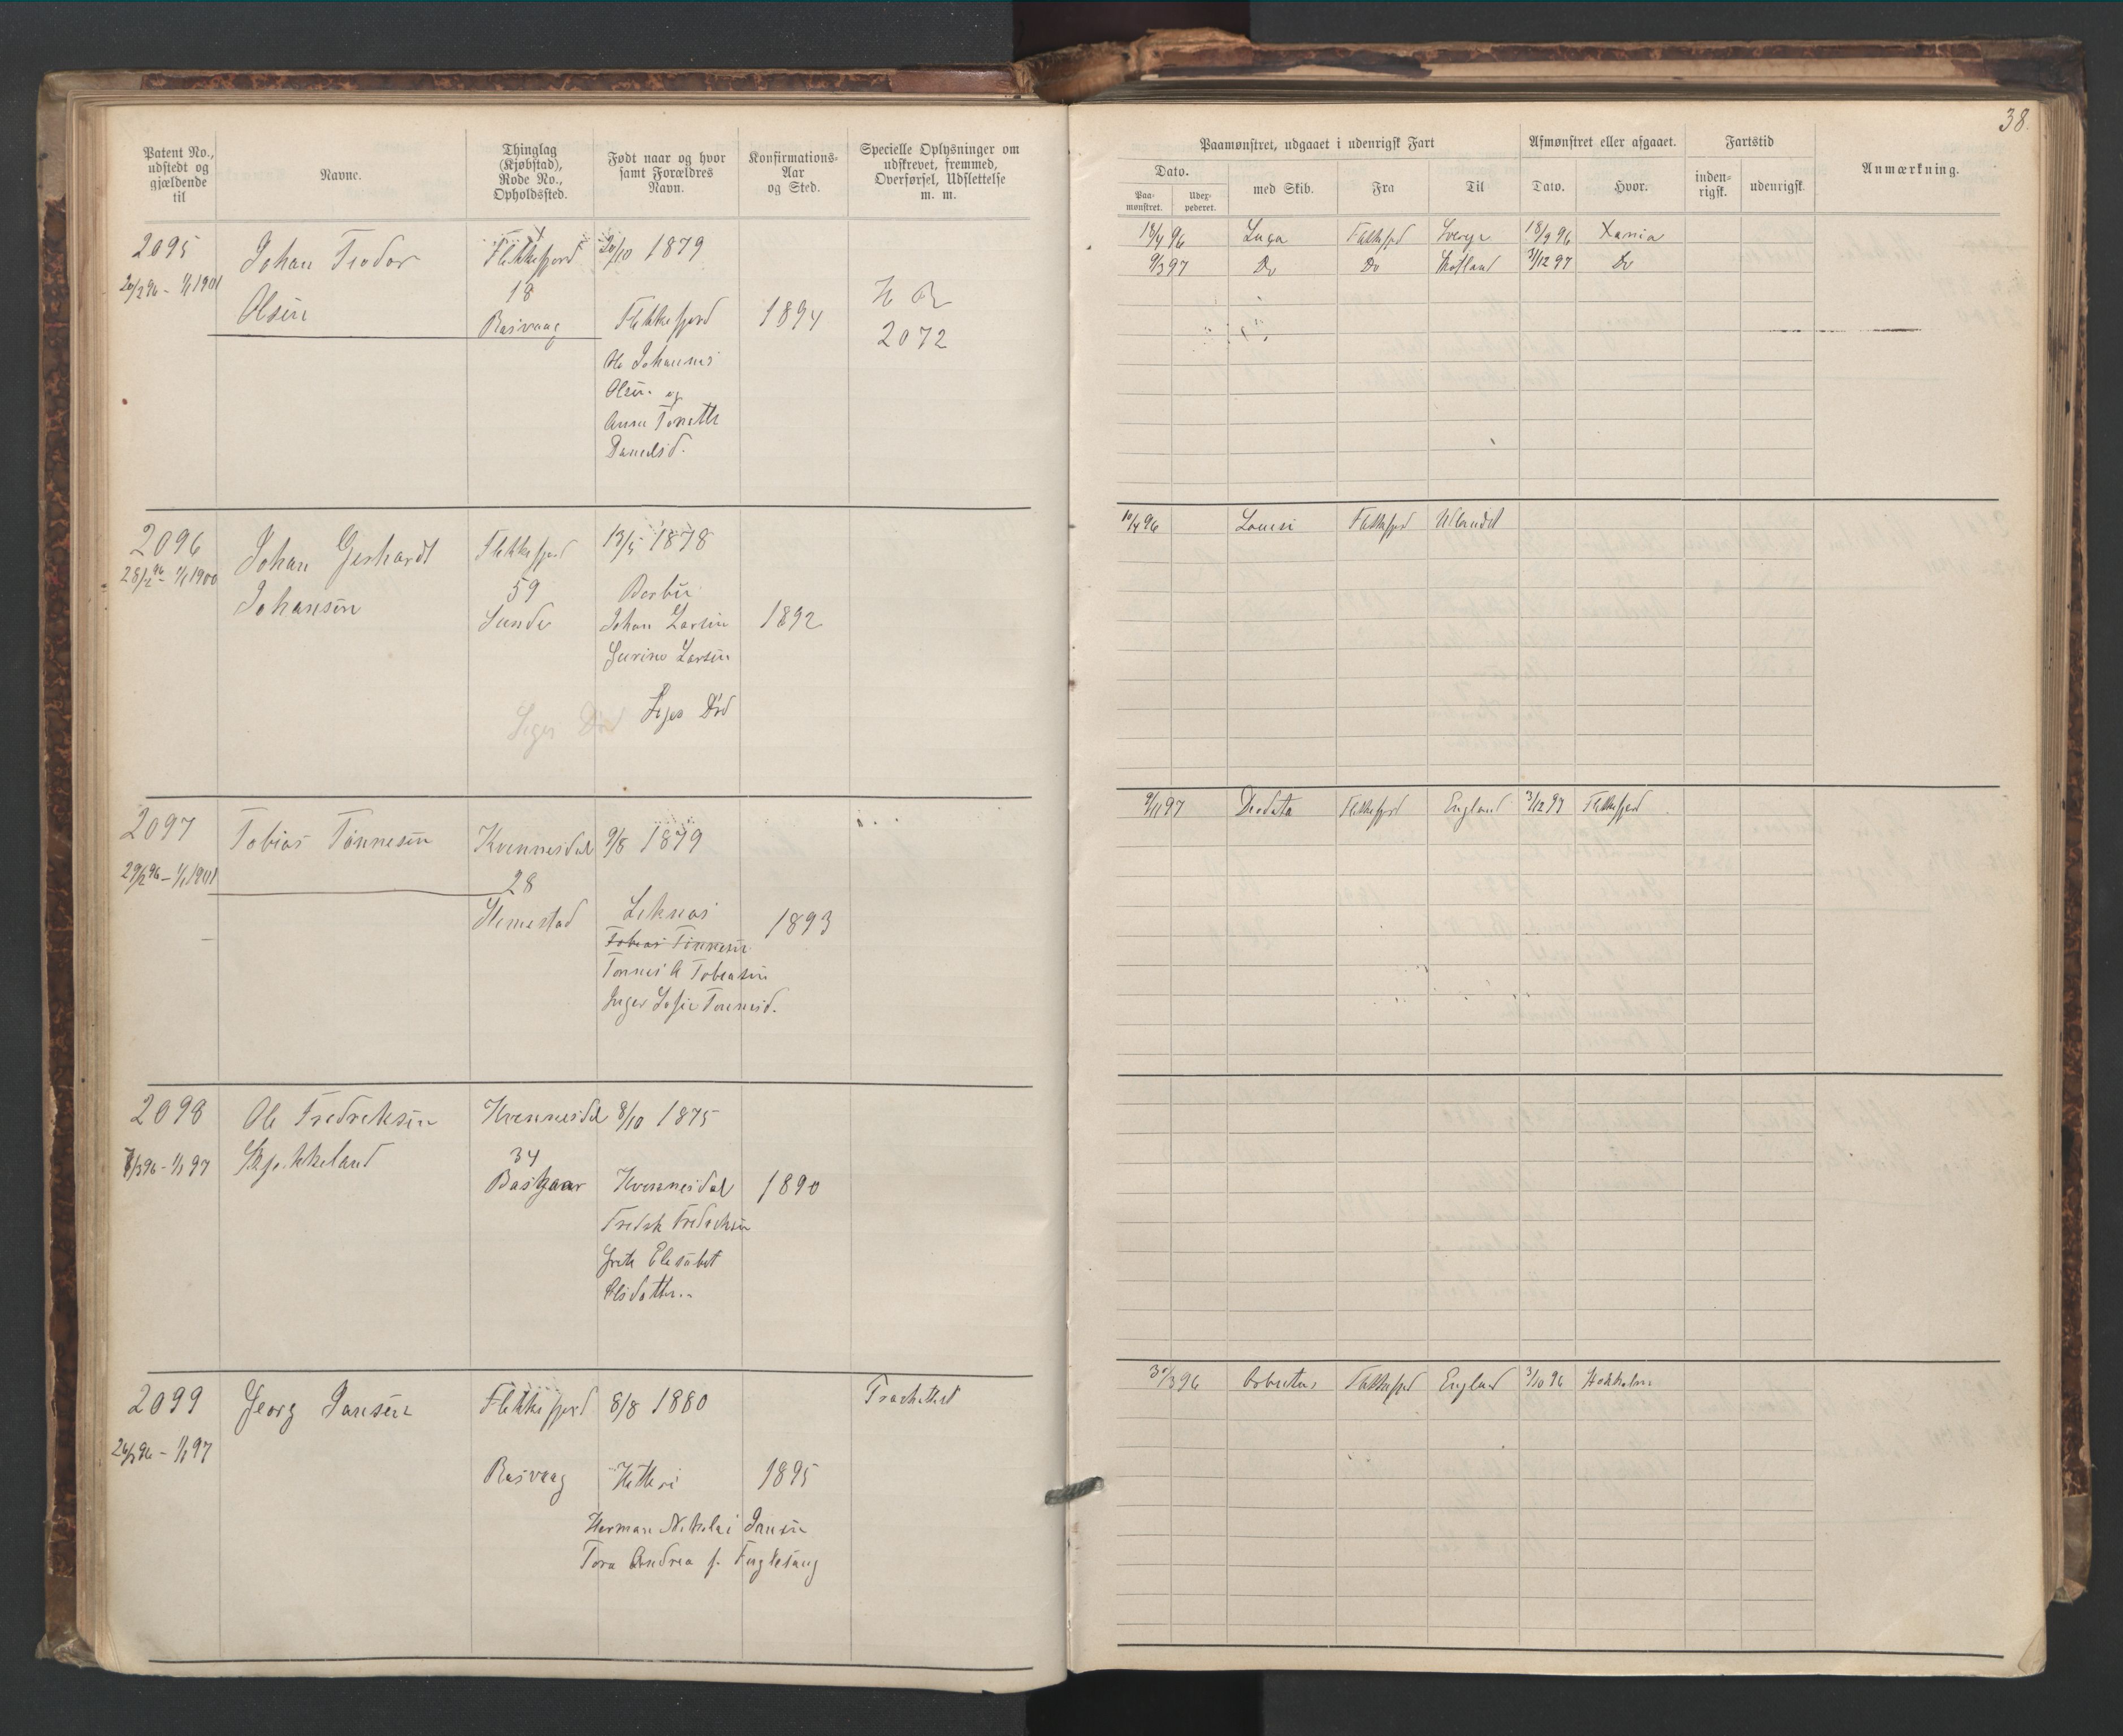 38.
Patent No., udstedt og gjældende til
Navne.
Thinglag (Kjøbstad), Rode No., Opholdssted.
Født naar og hvor samt Forældres Navn.
Konfirmations-Aar og Sted.
Specielle Oplysninger om udskrevet, fremmed, Overførsel, Udslettelse m. m.
Paamønstret, udgaaet i udenrigsk Fart
Afmønstret eller afgaaet.
Fartstid
Anmærkning.
Dato.
Paa-mønstret.
Udex-pederet.
med Skib.
Fra
Til
Dato.
Hvor.
inden-rigsk.
udenrigsk.
2095
20/2 96 - 1/1 1901
Johan Teodor
Olsen
Flekkefjord
18
Rasvaag
20/10 1879
Flekkefjord
Ole Johannes
Olsen og
Anne Tonette
Danielsd.
1894
2072
18/4 96 Luga Flekkefjord Sverge 18/9 96 Xania
9/3 97 Do Do Skotland 3/12 97 Do
2096
28/2 96 - 1/1 1900
Johan Gerhardt
Johansen
Flekkefjord
59
Sunde
13/5 1878
Berbu
Johan Larsen
Gurine Larsen
1892
Siges Død
Siges Død
10/4 96 Louise Flekkefjord Udlandet
2097
29/2 96 - 1/1 1901
Tobias Tønnesen
Kvinnesdal
28
Slimestad
9/8 1879
Leknes
Tobias Tønnesen
Tønnes A Tobiassen
Inger Sofie Tønnesd.
1893
9/11 97 Deodata Flekkefjord England 3/12 97 Flekkefjord
2098
7/3 96 - 1/1 97
Ole Fredreksen
Skjekkeland
Kvinnesdal
34
8/10 1875
Kvinnesdal
Fredrik Fredreksen
Grete Elesabet
Olsdatter
1890
2099
26/3 96 - 1/1 97
Georg Jansen
Flekkefjord
Rasvaag
8/8 1880
Hitterø
Herman Nikolai Jansen
Tora Andrea f. Fuglesang
1895
3/3 96 Arbutus Flekkefjord England 3/10 96 Stokholm